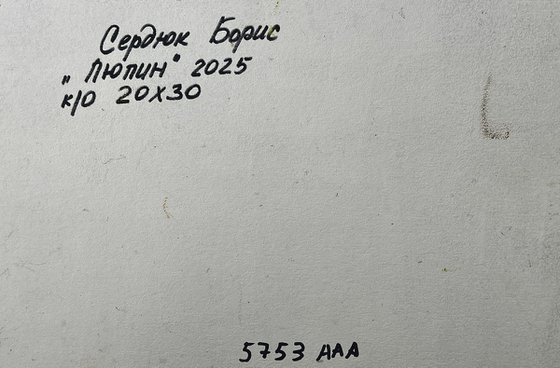 Сердюк Борис
„Люпин" 2025
к/о 20х30
5753 ААА